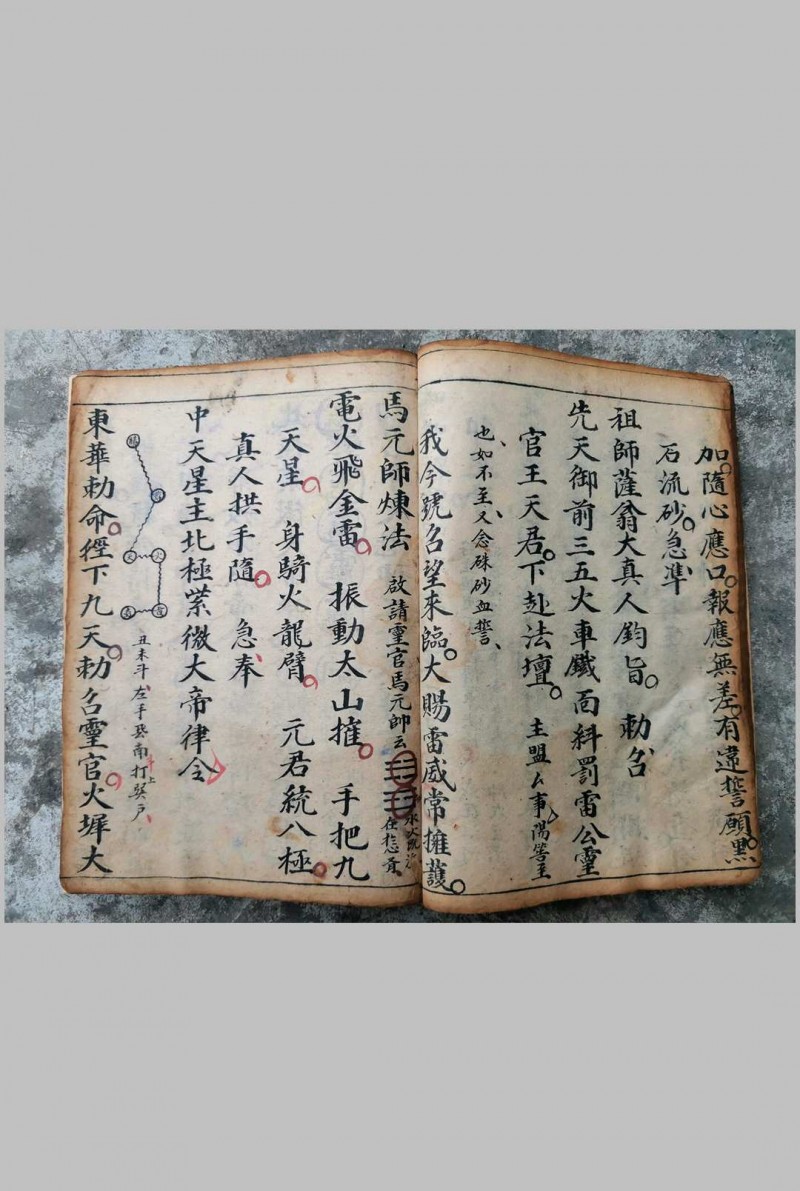 加。隨心應口。報應無差。有違誓願。黑
石流砂。急準
祖師薩翁大真人鈞旨。勅召
先天御前三五火車鐵面糾罰雷公靈
官王天君。下赴法壇。主盟厶事陽筶至
也、如不至、又念硃砂血誓、
我今號召望來臨。大賜雷威常擁護。
馬元師煉法 啟請靈官馬元帥云
電火飛金雷。振動太山摧。手把九
天星。身騎火龍臂。元君統八極。
真人拱手隨。急奉
中天星主北極紫微大帝律令
丑未斗左手癸南打巽戶
東華勅命。徑下九天。勅召靈官。火墀大